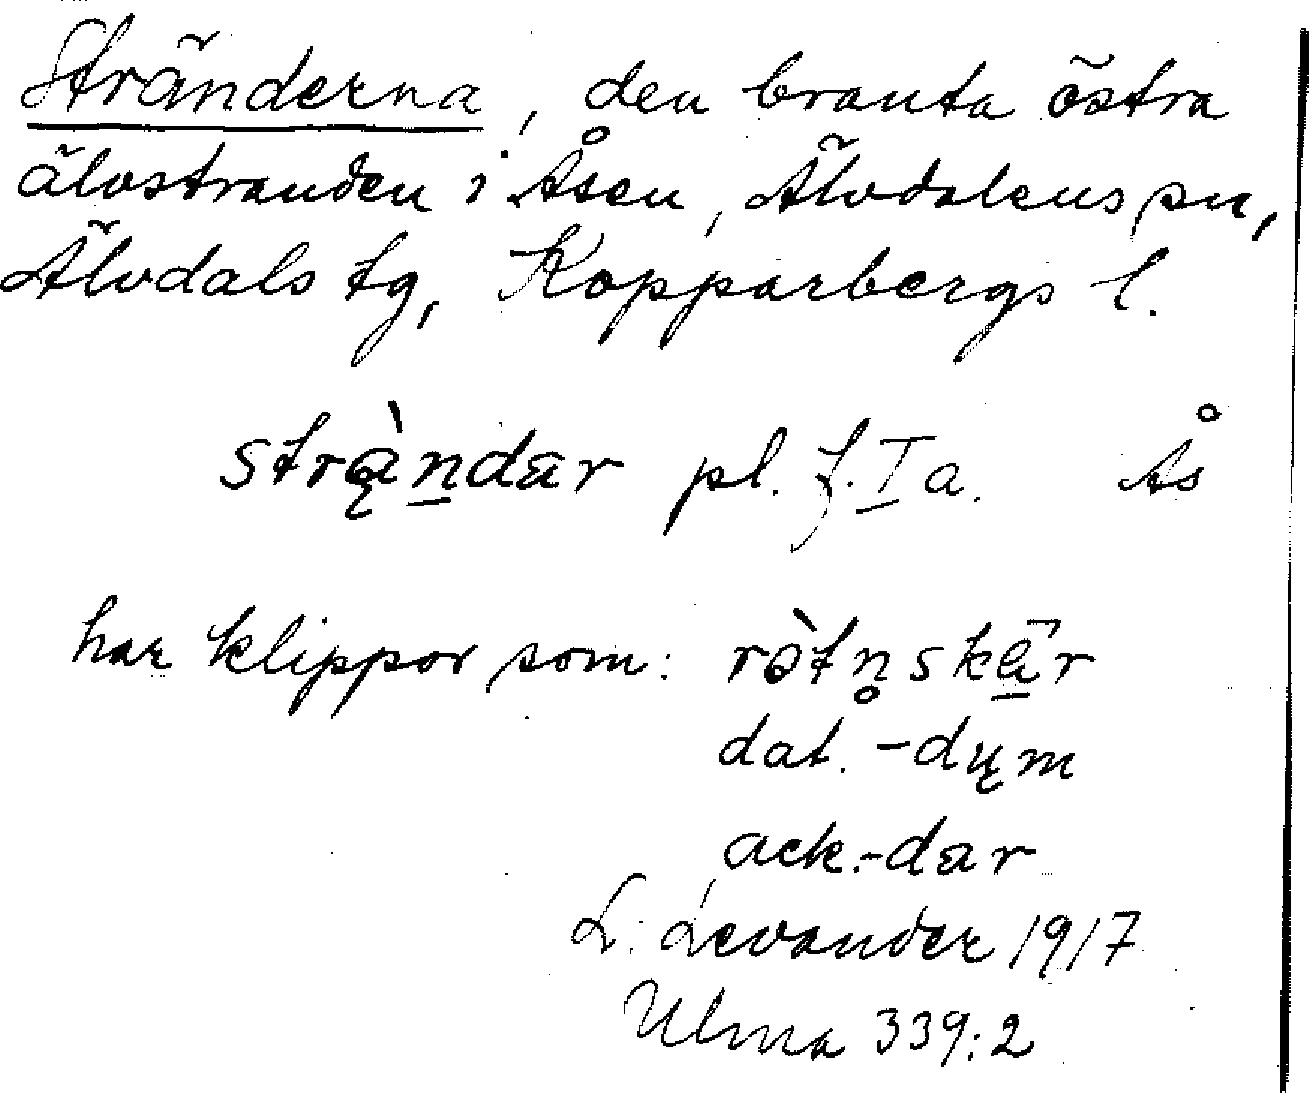 Stränderna, den branta östra
älvstranden i Åsen, Älvdalens sn,
Älvdals tg, Kopparbergs l.
strą̀n̲dar pl. f. I̲a. Ås
har klippor som: rətn̥skär
dat. -dųm
ack. -dar
L. Levander 1917
Ulma 339:2